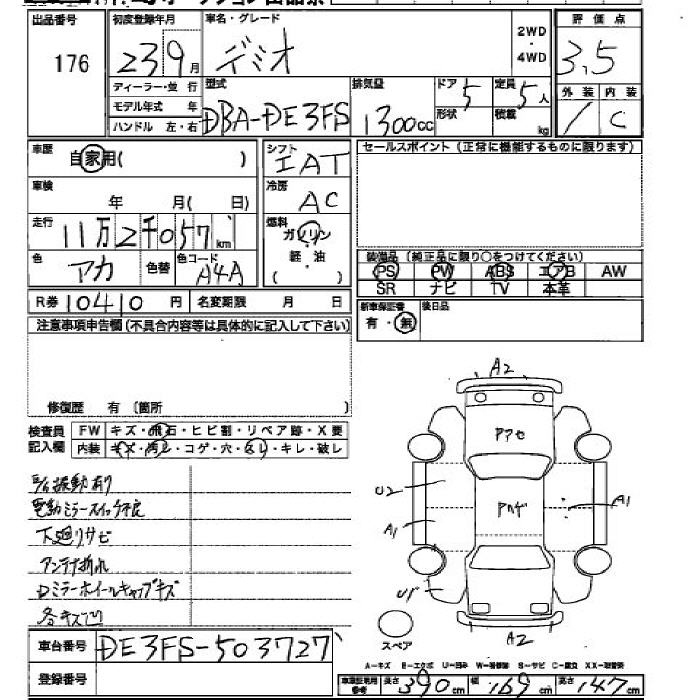 出品番号 176
初度登録年月 23 9月
車名・グレード デミオ
2WD・4WD
評価点 3.5
外装 / 内装 C
ディーラー・並行
モデル年式 年
ハンドル 左・右
型式 DBA-DE3FS
排気量 1300cc
ドア 5 形状
定員 5人 積載 kg
車歴 自家用( )
シフト IAT
セールスポイント (正常に機能するものに限ります)
車検 年 月( 日)
冷房 AC
走行 11万2千057km
燃料 ガソリン 軽・油 ( )
色 アカ 色替 色コード A4A
装備品(純正品に限り〇をつけてください)
PS PW ABS エアB AW
SR ナビ TV 本革
R券 10410円 名変期限 月 日
新車保証書 有・無 後日品
注意事項申告欄(不具合内容等は具体的に記入して下さい)
修復歴 有 (箇所 )
検査員記入欄 FW キズ・飛石・ヒビ割・リペア跡・X要
内装 キズ・汚レ・コゲ・穴・ハレ・キレ・破レ
振動有り
電動ミラースイッチ不良
下廻りサビ
アンテナ折れ
Dミラーホイールキャップキズ
各キズ凹
A2
アアセ
U2
アハゲ
A1
A1
U1
A2
スペア
車台番号 DE3FS-503727
登録番号
A-キズ E-エクボ U-凹み W-補修跡 S-サビ C-腐食 XX-取替済
車庫証明用参考 長さ 390cm 幅 169cm 高さ 147cm